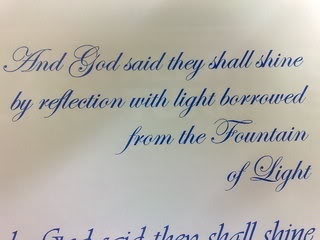 And God said they shall shine
by reflection with light borrowed
from the Fountain
of Light
God said they shall shine